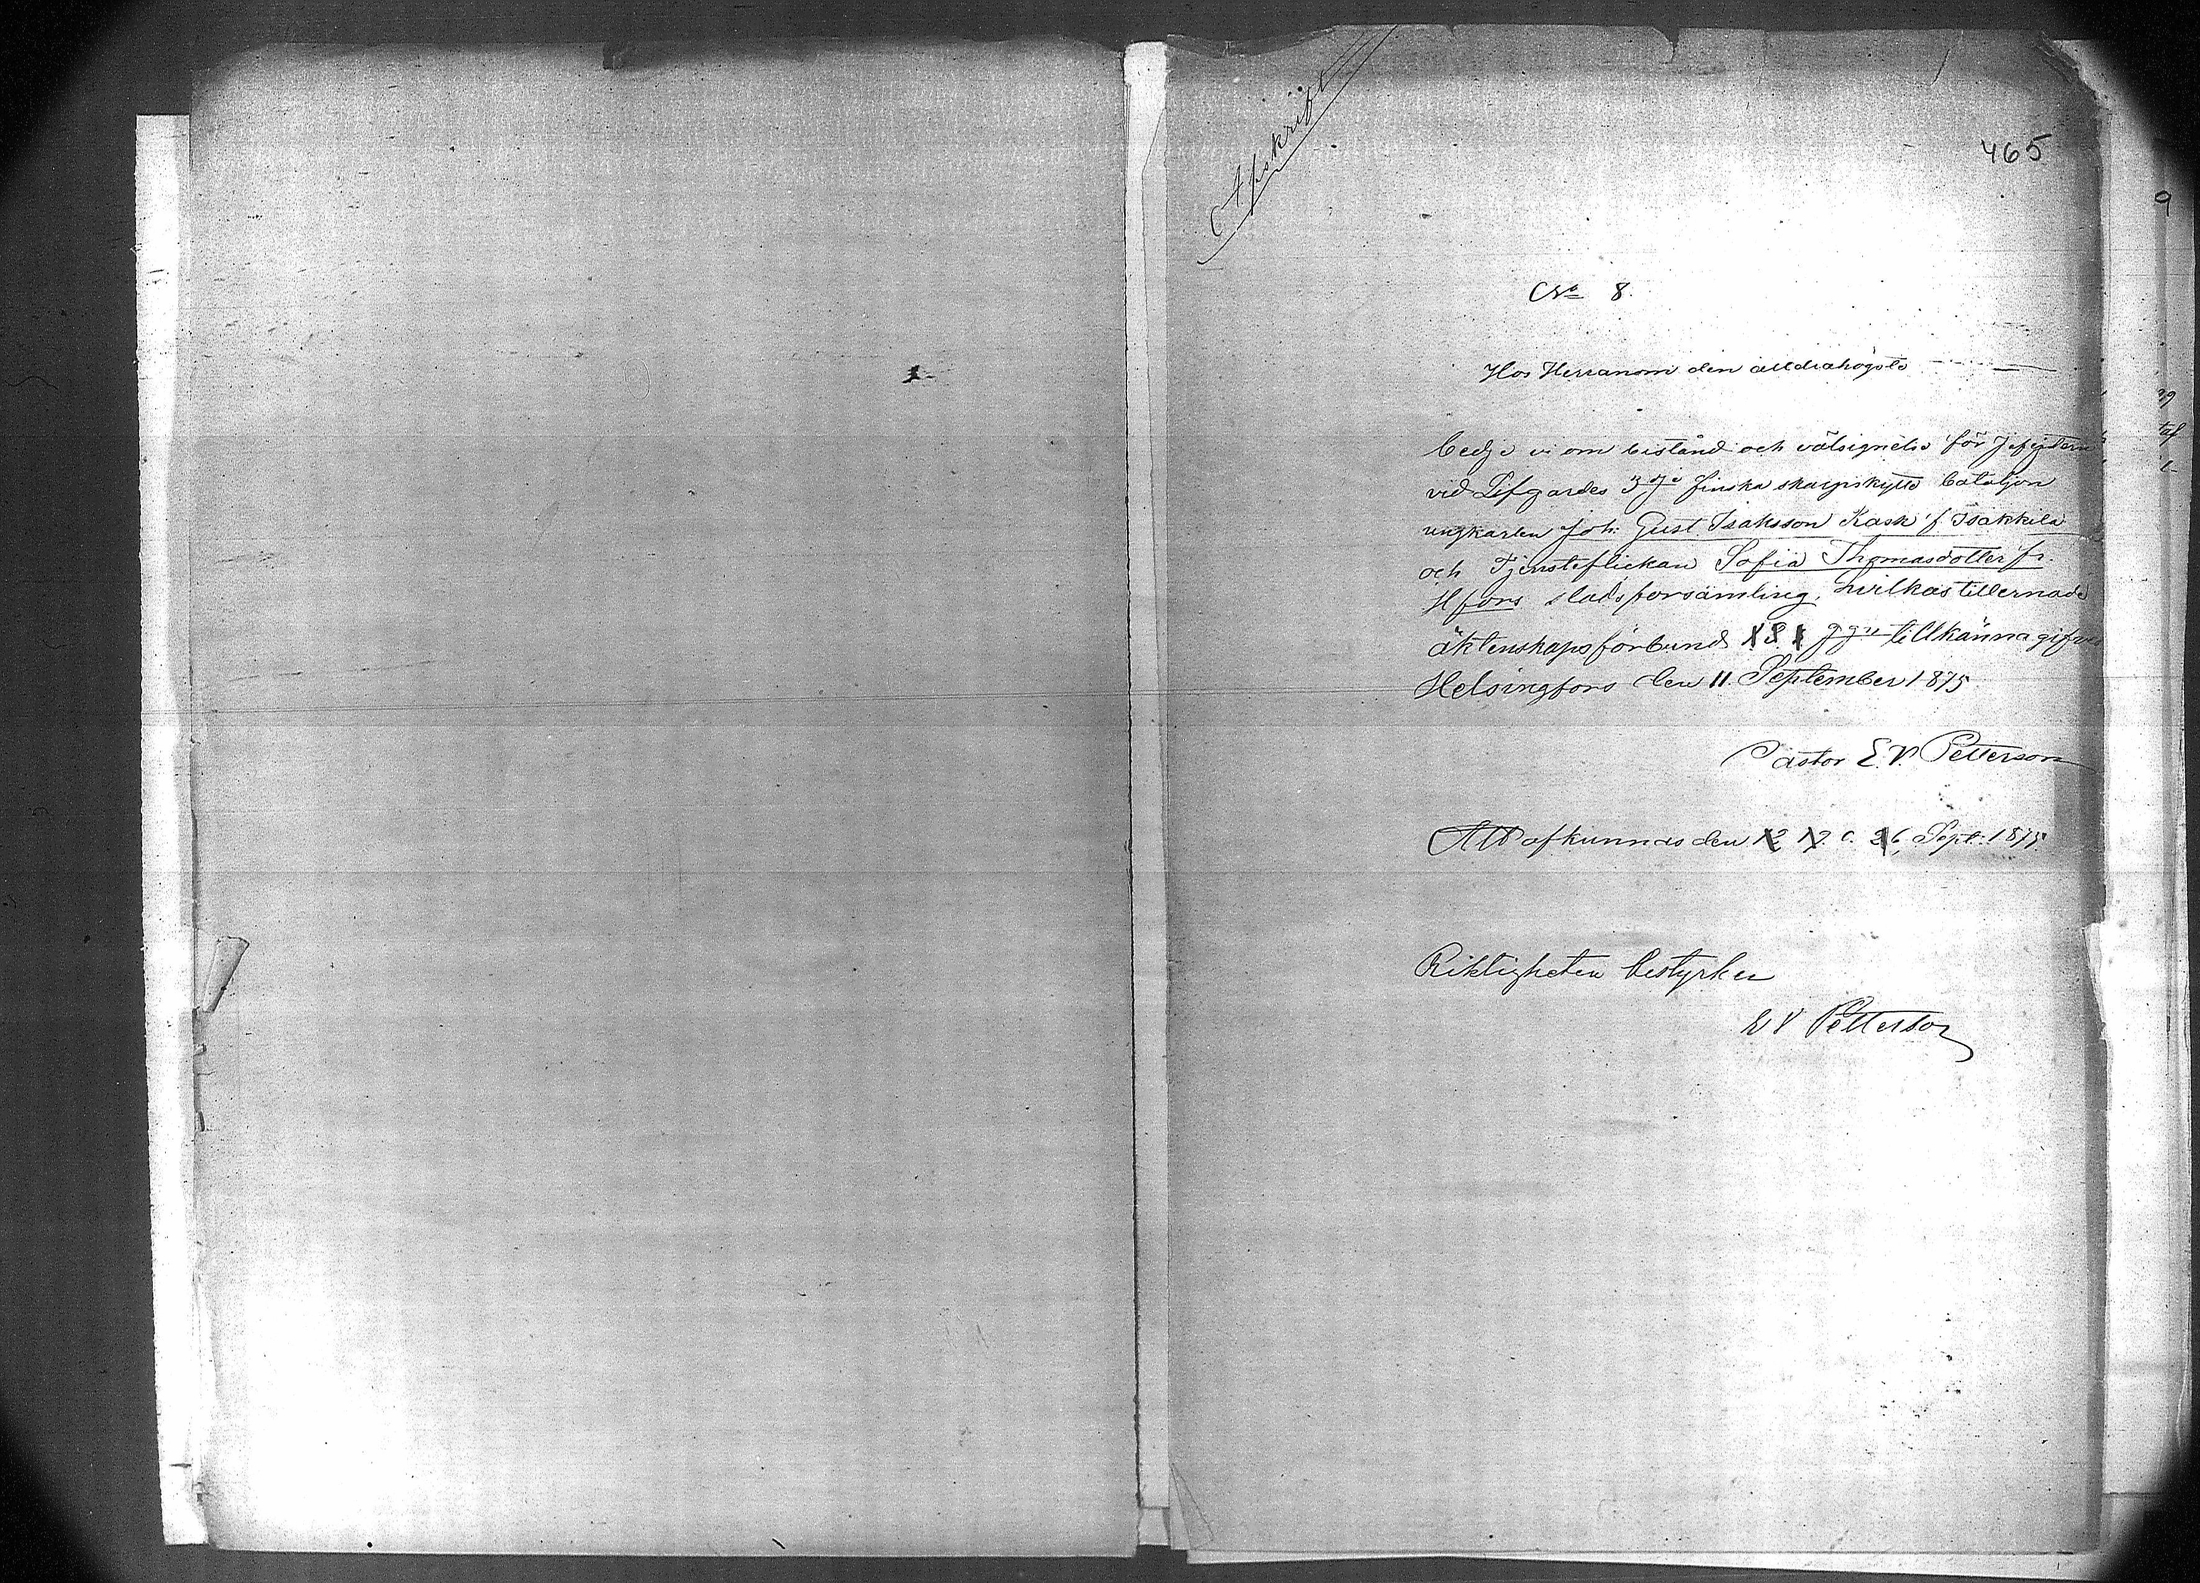 Afskrift
465
No 8.
Hos Herranom den alldrahögste
bedje vi om bistånd och välsignelse för
vid Lifgardes 3dje finska skarpskytte bataljon
ungkarlen Joh. Gust. Isaksson Kask f. Isakkila
och Tjensteflickan Sofia Thomasdotter fr.
Hfors stadsförsamling, hvilkas tillernade
äktenskapsförbund ggn tillkännagifves
Helsingfors den 11. September 1875
Pastor E. V. Petterson
Att afkunnas den 12 19. o. 26, Sept. 1875.
Riktigheten bestyrker
E V Petterson